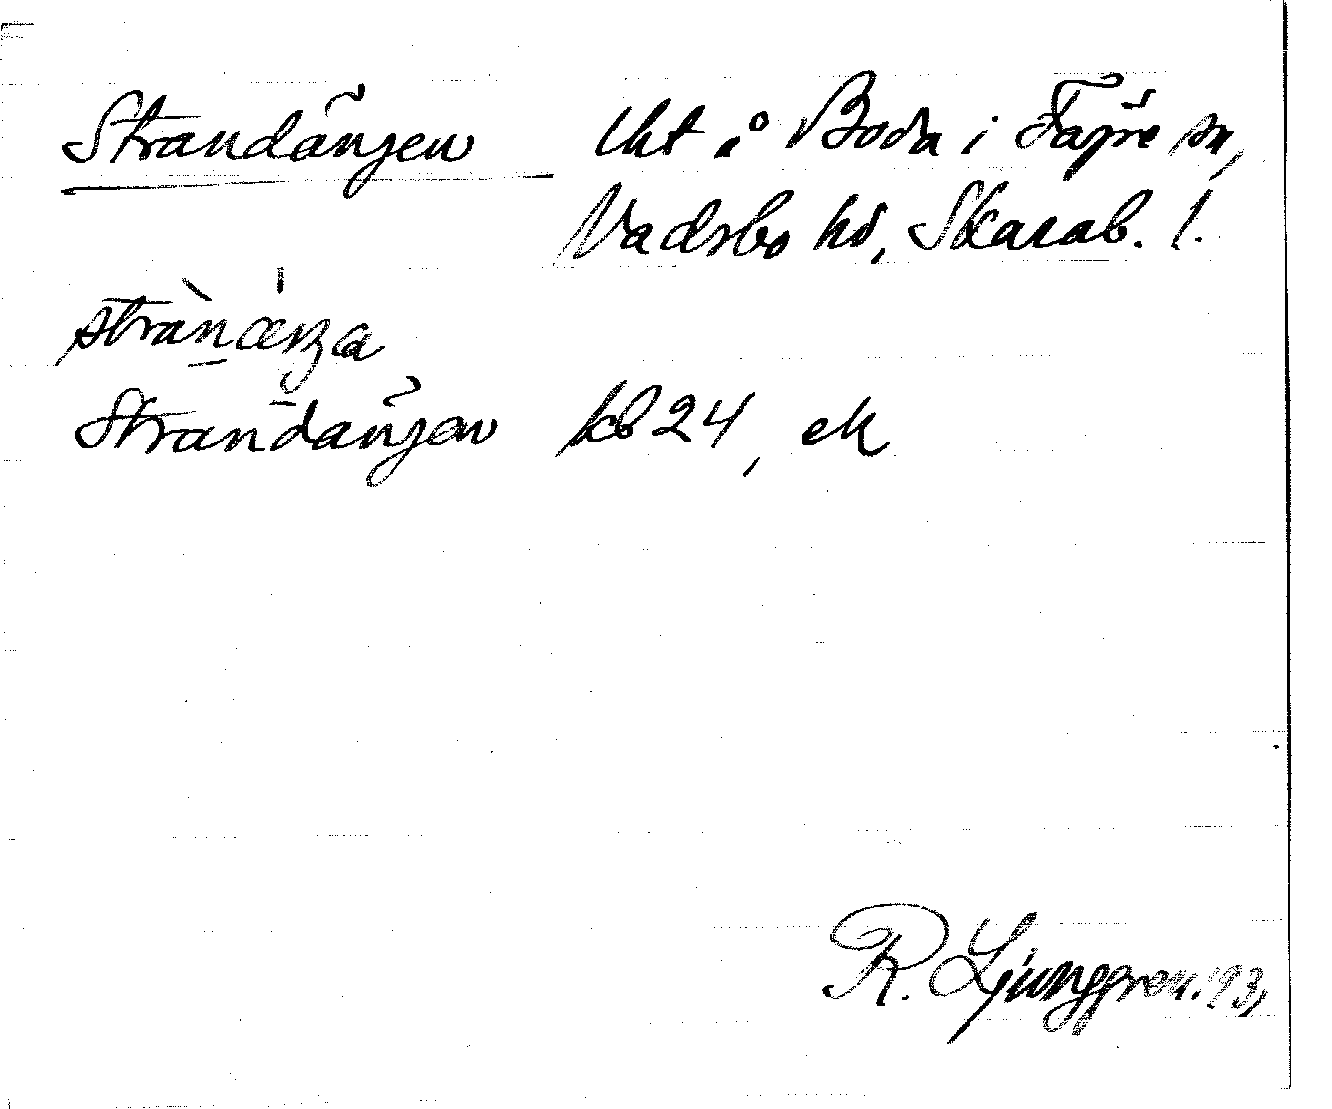 Strandängen lht å Boda i Fägre sn,
Vadsbo hd, Skarab. l.
strànæŋa
Strandängen kb 24, ek
R. Ljunggren.